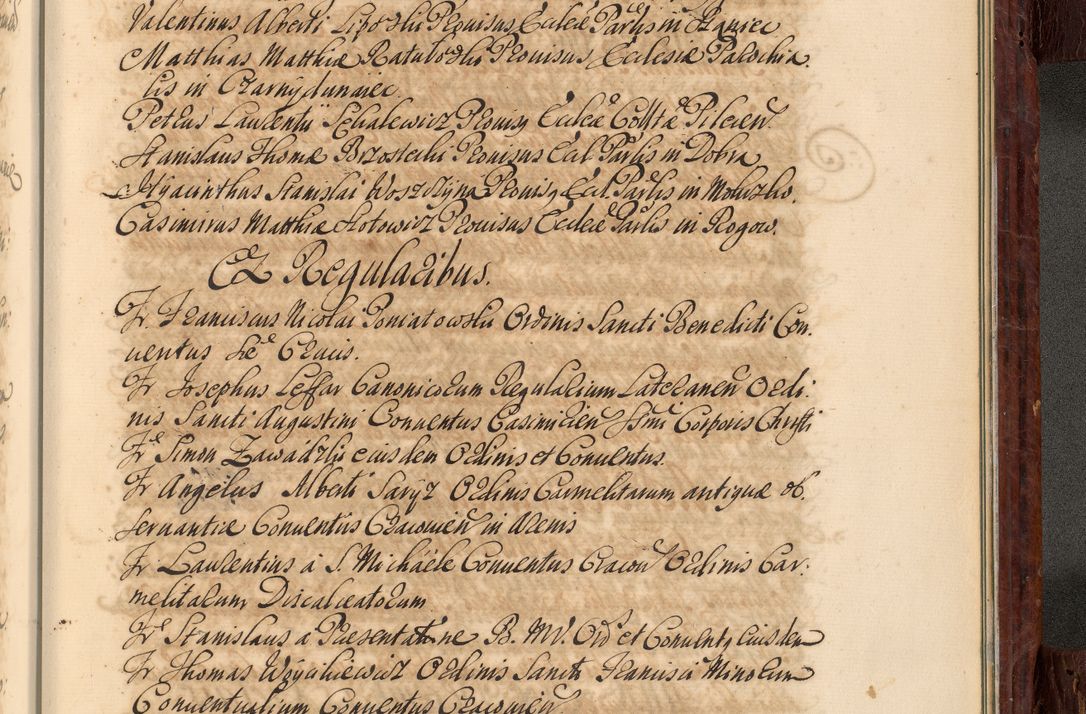 Valentinus Alberti Lipo ski Prouisus Eccleæ Parlis in Staniec
Matthias Matthiæ Ratulowski Prouisus Ecclesiæ Parochia
lis in Czarnydunaiec
Petrus Laurentii Schalewicz Prouisq Eccleæ Colltæ Pilcien̄.
Stanislaus Thomæ Brzostecki Prouisus Eccl Parlis in Dobra
Hyacinthus Stanislai Woszczyna Prouisq Eccl Parlis in Moluzko.
Casimirus Matthiæ Hotowicz Prouisus Eccleæ Parlis in Rogow.
Ex Regularibus.
Fr. Franciscus Nicolai Poniatowski Ordinis Sancti Benedicti Con.
uentus Sæ Crucis.
Fr Josephus Leffar Canonicorum Regularium Lateranen̄ Ordi
nis Sancti Augustini Conuentus Casimirien̄ SSmi Corporis Christi
Fr Simon Zawadzki eiusdem Ordinis et Conuentus.
Fr Angelus Alberti Saryz Ordinis Carmelitarum antiquæ ob.
seruantiæ Conuentus Cracouien̄ in Arenis
Fr Laurentius a S. Michaele Conuentus Cracou Ordinis Car.
melitarum Discalceatorum
Fr Stanislaus a Præsentatione B. MV. Ord et Conuentq eiusdem
Fr Thomas Woycikiewicz Ordinis Sancti Francisci Minorum
Conuentualium Conuentus Cracouien̄.